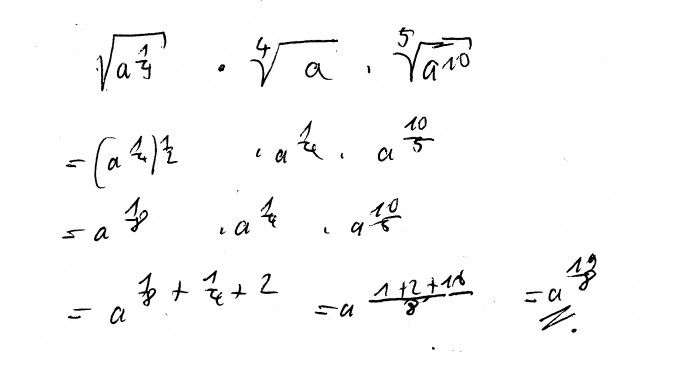 √(a^(1/4)) · ⁴√a · ⁵√(a^10)
= (a^(1/4))^(1/2) · a^(1/4) · a^(10/5)
= a^(1/8) · a^(1/4) · a^(10/5)
= a^(1/8 + 1/4 + 2) = a^((1+2+16)/8) = a^(19/8)